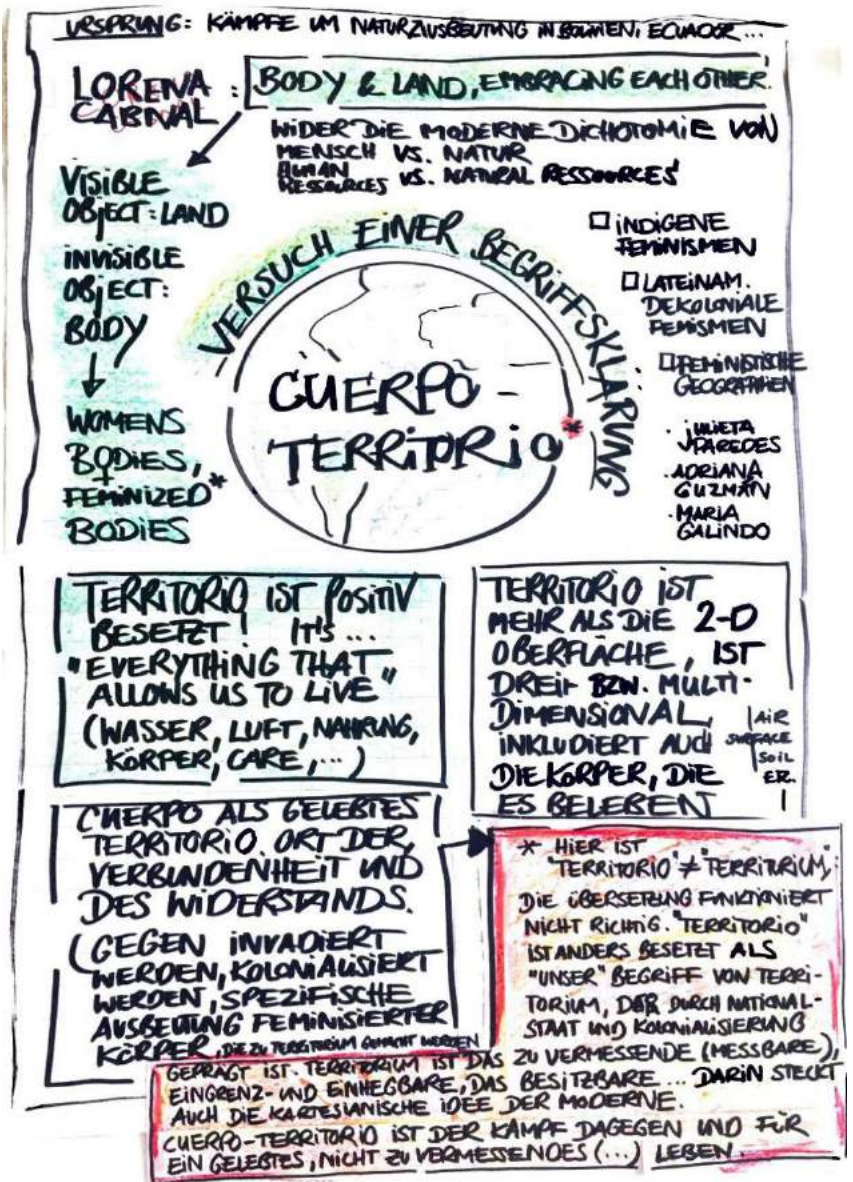 URSPRUNG: KÄMPFE UM NATURAUSBEUTUNG IN BOLIVIEN, ECUADOR...
LORENA
CABNAL :
BODY & LAND, EMBRACING EACH OTHER.
WIDER DIE MODERNE DICHOTOMIE VON
MENSCH VS. NATUR
HUMAN
RESSOURCES VS. NATURAL RESSOURCES
VISIBLE
OBJECT: LAND
INVISIBLE
OBJECT:
BODY
WOMENS
BODIES,
+
FEMINIZED*
BODIES
VERSUCH EINER BEGRIFFSKLÄRUNG
CUERPO -
TERRITORIO*
INDIGENE
FEMINISMEN
LATEINAM.
DEKOLONIALE
FEMISMEN
FEMINISTISCHE
GEOGRAPHIEN
· JULIETA
PAREDES
· ADRIANA
GUZMÁN
· MARIA
GALINDO
TERRITORIO IST POSITIV
BESETZT! IT'S...
"EVERYTHING THAT
ALLOWS US TO LIVE"
(WASSER, LUFT, NAHRUNG,
KÖRPER, CARE,...)
TERRITORIO IST
MEHR ALS DIE 2-D
OBERFLÄCHE, IST
DREI- BZW. MULTI-
DIMENSIONAL,
INKLUDIERT AUCH
DIE KÖRPER, DIE
ES BELEBEN
AIR
SURFACE
SOIL
CUERPO ALS GELEBTES
TERRITORIO. ORT DER
VERBUNDENHEIT UND
DES WIDERSTANDS.
(GEGEN INVADIERT
WERDEN, KOLONIALISIERT
WERDEN, SPEZIFISCHE
AUSBEUTUNG FEMINISIERTER
KÖRPER, DIE ZU TERRITORIUM GEMACHT WERDEN
* HIER IST
"TERRITORIO" ≠ "TERRITORIUM":
DIE ÜBERSETZUNG FUNKTIONIERT
NICHT RICHTIG. "TERRITORIO"
IST ANDERS BESETZT ALS
"UNSER" BEGRIFF VON TERRI-
TORIUM, DER DURCH NATIONAL-
STAAT UND KOLONIALISIERUNG
GEPRÄGT IST. TERRITORIUM IST DAS ZU VERMESSENDE (MESSBARE),
EINGRENZ- UND EINHEGBARE, DAS BESITZBARE... DARIN STECKT
AUCH DIE KARTESIANISCHE IDEE DER MODERNE.
CUERPO-TERRITORIO IST DER KAMPF DAGEGEN UND FÜR
EIN GELEBTES, NICHT ZU VERMESSENDES (...) LEBEN.